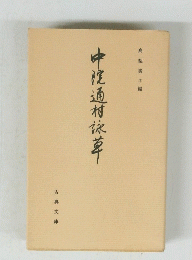 中院通村詠草
古典文庫